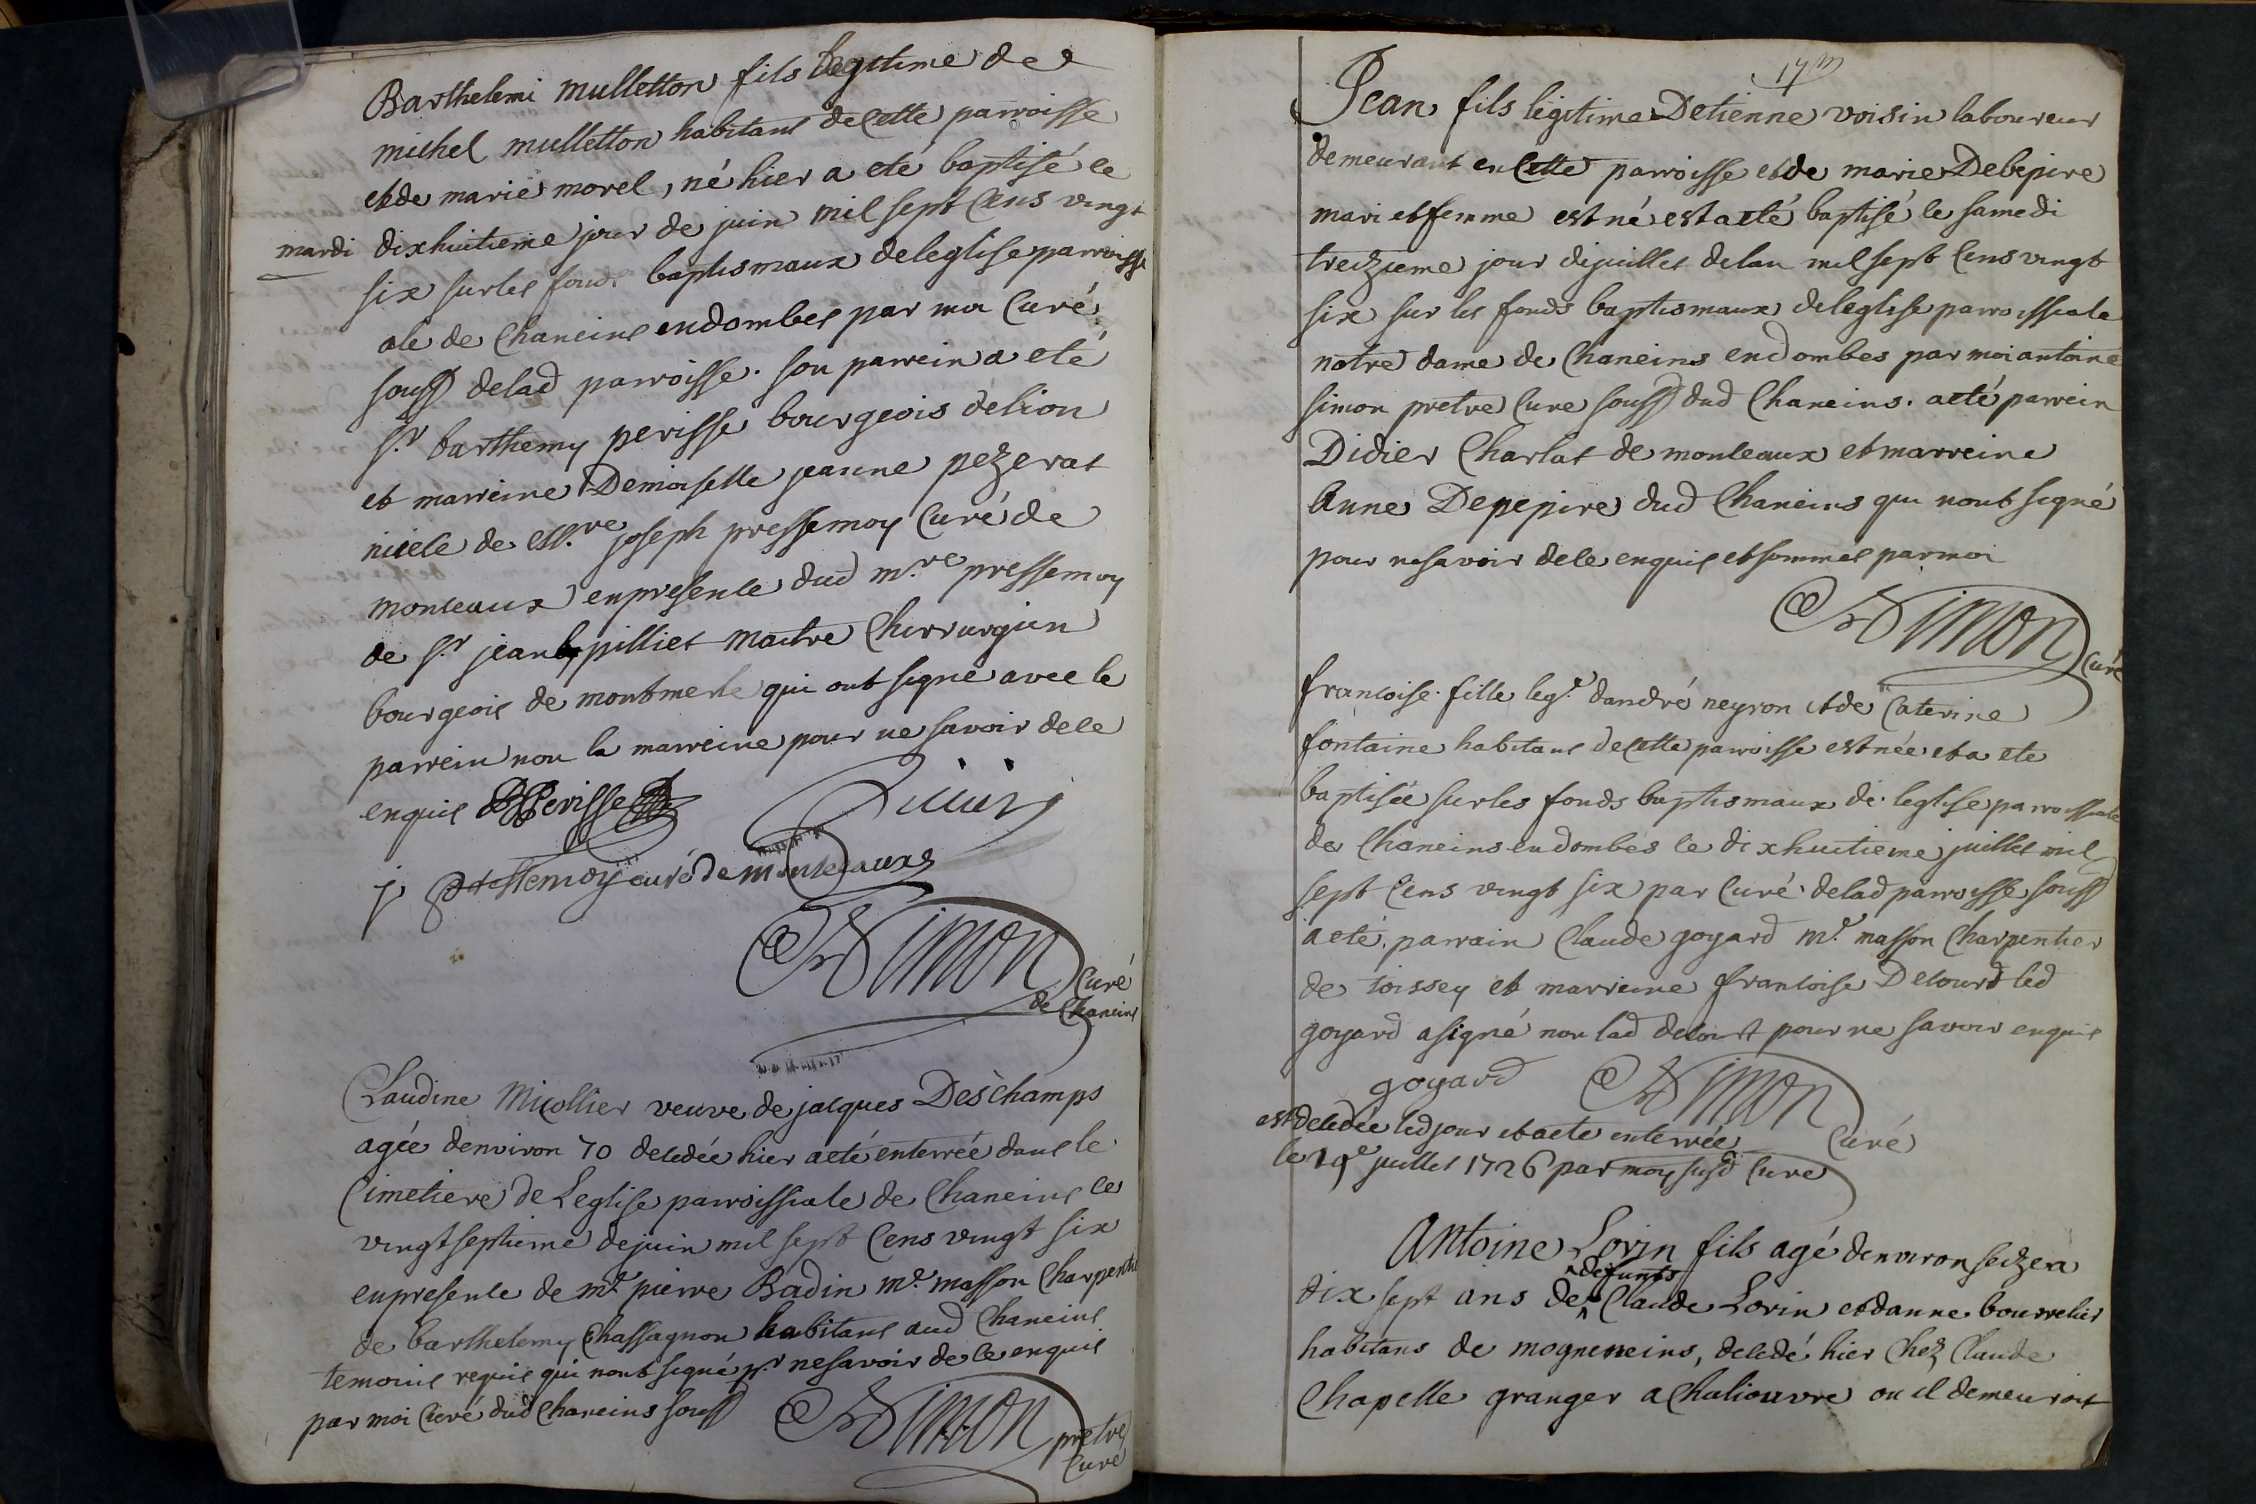 Barthelemi mulletton fils legitime de
michel mulletton habitans de cette parroisse
et de marie morel, né hier a eté baptisé le
mardi dixhuitieme jour de juin mil sept cens vingt
six sur les fonds baptismaux de leglise parroissi
ale de Chaneins en dombes par moi Curé
souss delad parroisse. son parrein a eté
sr barthemy perisse bourgeois de lion
et marreine Demoiselle jeanne pezerat
niece de Mre joseph pressemoy Curé de
monceaux en presence dud mre pressemoy
de sr jean pilliet maitre Chirurgien
bourgeois de montmerle qui ont signé avec le
parrein non la marreine pour ne savoir de ce
enquis Perisse
j pressemoy curé de montceaux
Simon Curé
de Chaneins
Claudine Micollier veuve de jacques Deschamps
agée denviron 70 decedée hier a eté enterrée dans le
Cimetiere de Leglise parroissiale de Chaneins le
vingt septieme de juin mil sept cens vingt six
en presence de mre pierre Badin me masson Charpenti
de barthelemy Chassagnon habitans aud Chaneins
temoins requis qui nont signé pr ne savoir de ce enquis
par moi Curé dud Chaneins souss Simon pretre
Curé
17m
Jean fils legitime Detienne voisin laboureur
demeurant en cette parroisse et de marie Depepire
mari et femme est né est a eté baptisé le samedi
treizieme jour de juillet de lan mil sept cens vingt
six sur les fonds baptismaux de leglise parroissiale
notre dame de Chaneins en dombes par moi antoine
simon pretre Cure souss dud Chaneins. a eté parrein
Didier Charlat de monceaux et marreine
Anne Depepire dud Chaneins qui nont signé
pour ne savoir de ce enquis et sommés par moi
Simon Curé
francoise fille lege dandré neyron et de Caterine
fontaine habitans de cette parroisse est née et a ete
baptisée sur les fonds baptismaux de leglise parroissiale
de Chaneins en dombes le dixhuitieme juillet mil
sept cens vingt six par Curé delad parroisse souss
a eté parrain Claude goyard me masson Charpentier
de toissey et marreine francoise Decourt led
goyard a signé non lad decourt pour ne savoir enquis
goyard Simon
Curé
est decedée led jour et a ete enterrée
le 19e juillet 1726 par moy susd Curé
Antoine Lorin fils agé denviron seize a
dix sept ans de defunts Claude Lorin et danne bourrelier
habitans de mogneneins, decedé hier Chez Claude
Chapelle granger a Chaliouvre ou il demeuroit